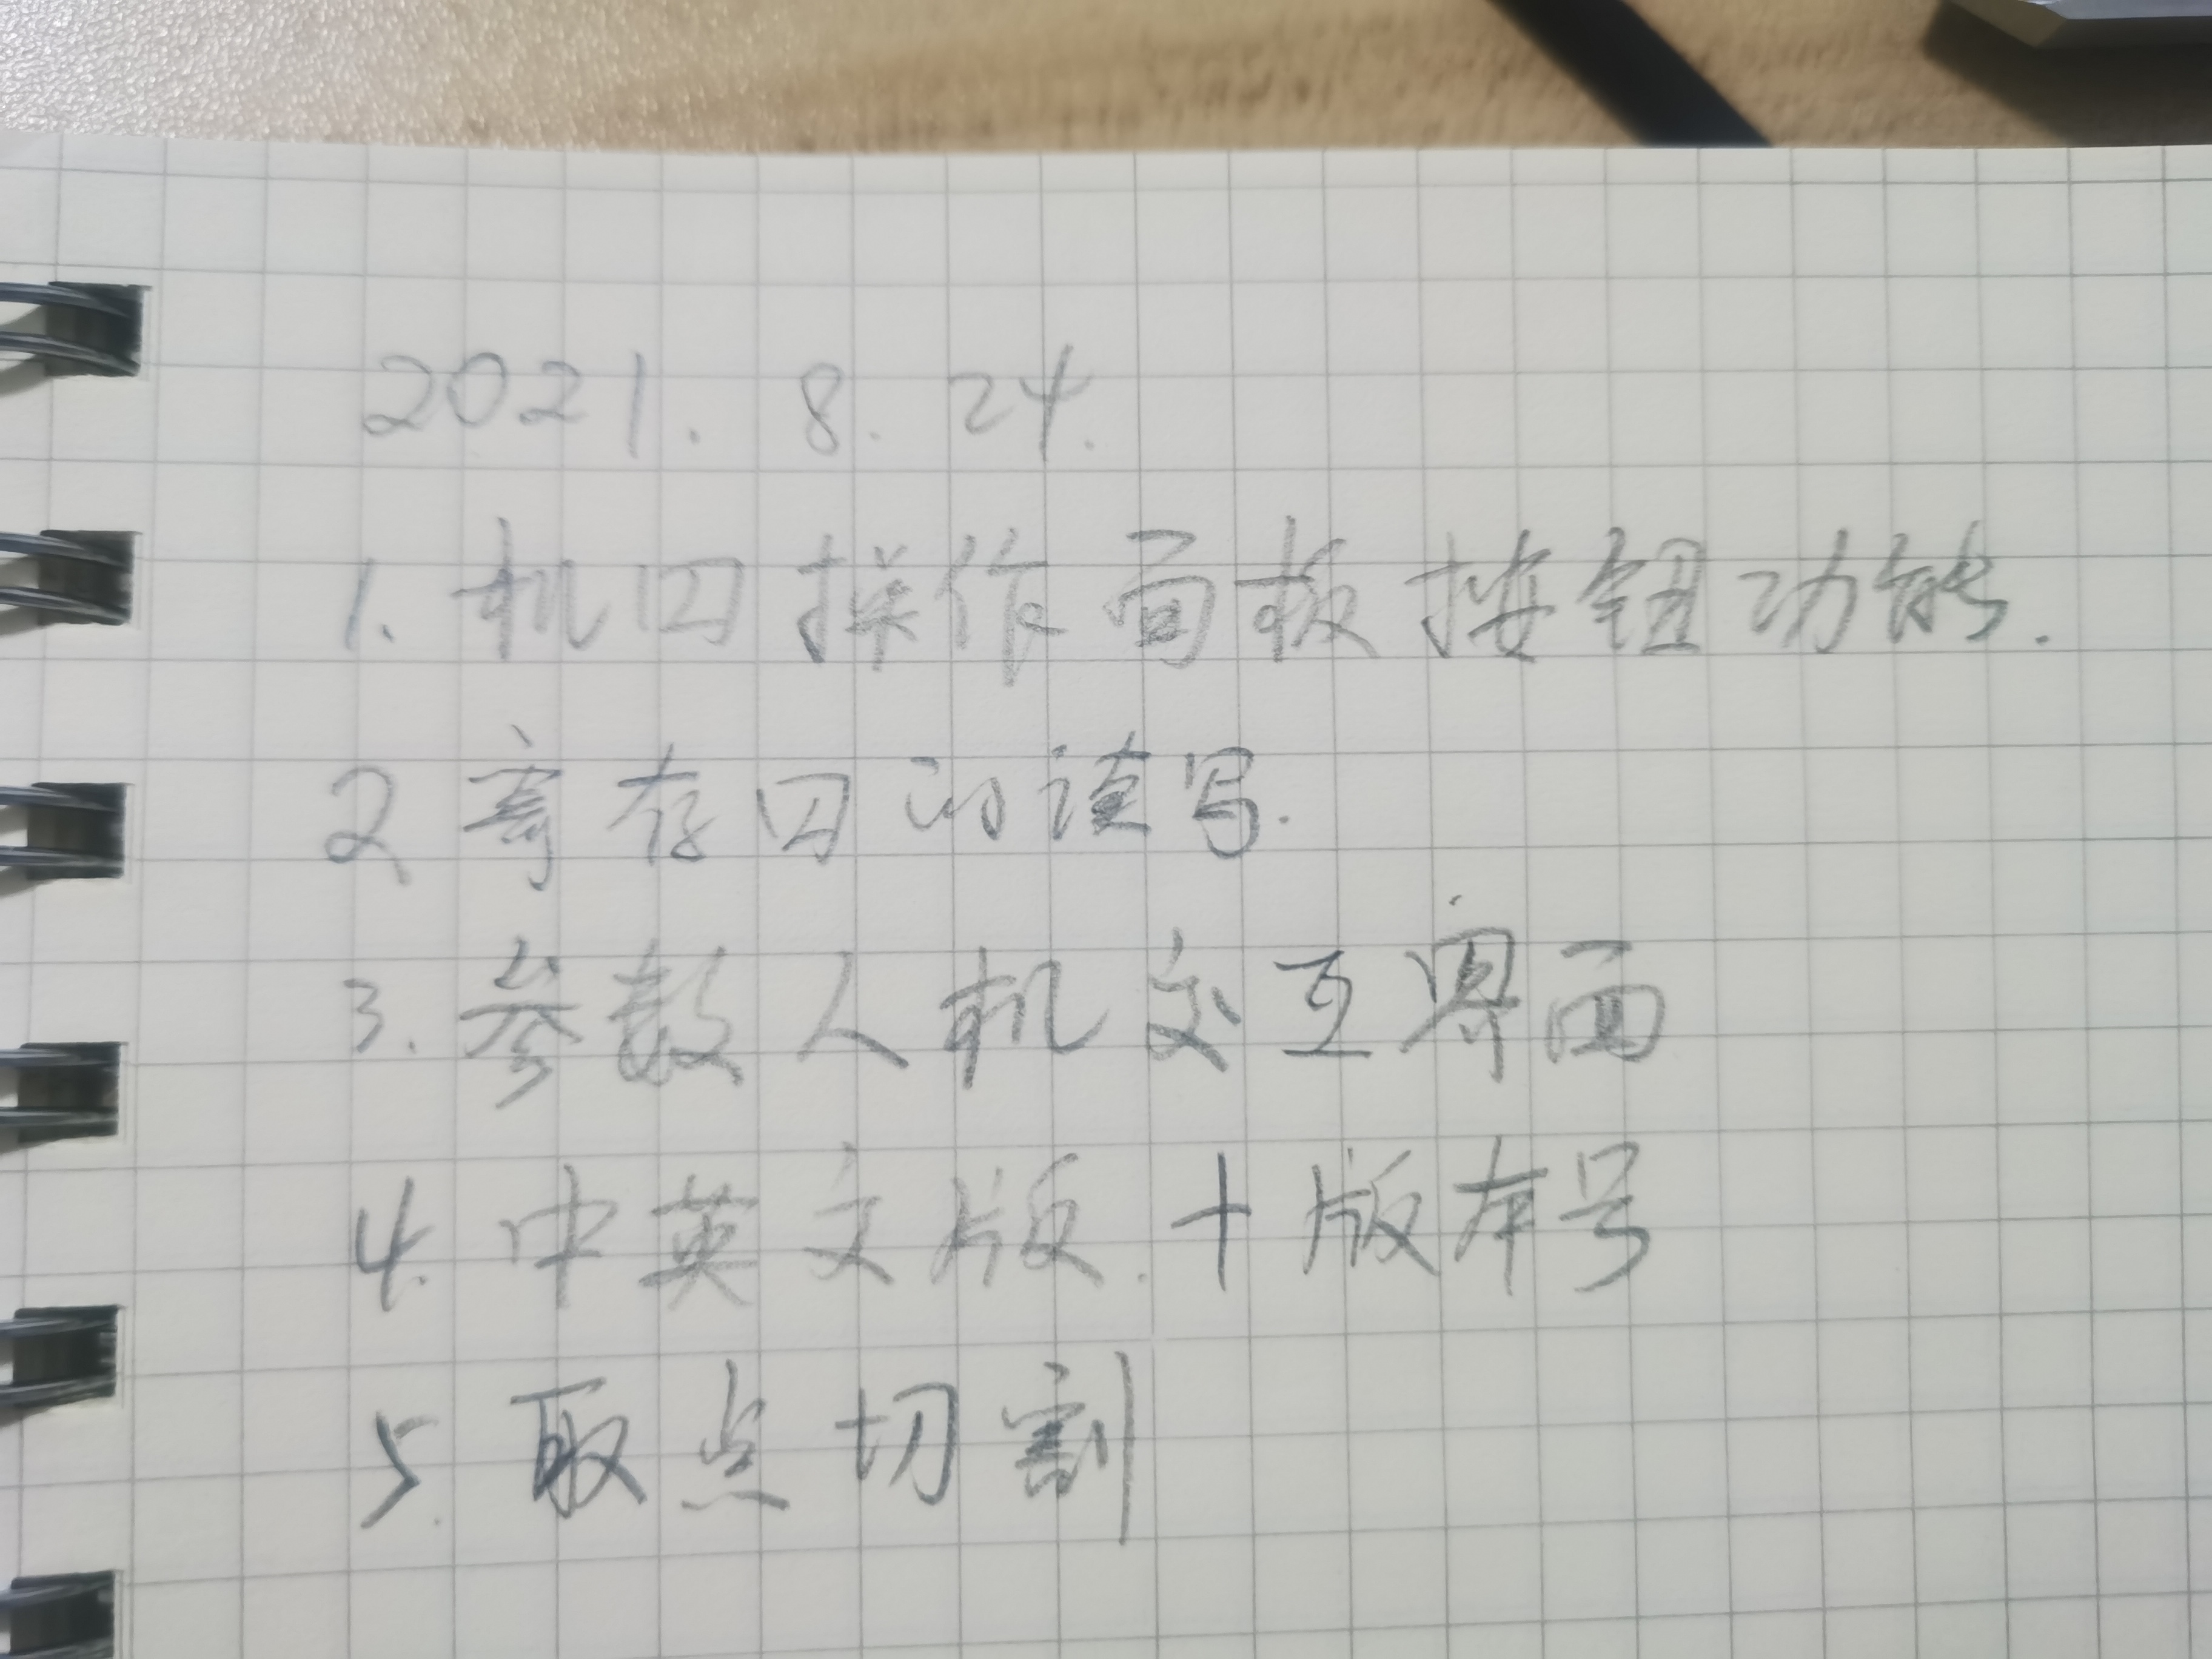 2021. 8. 24.
1. 机器操作面板按钮功能.
2 寄存器的读写.
3. 参数人机交互界面
4. 中英文版. + 版本号
5. 取点切割